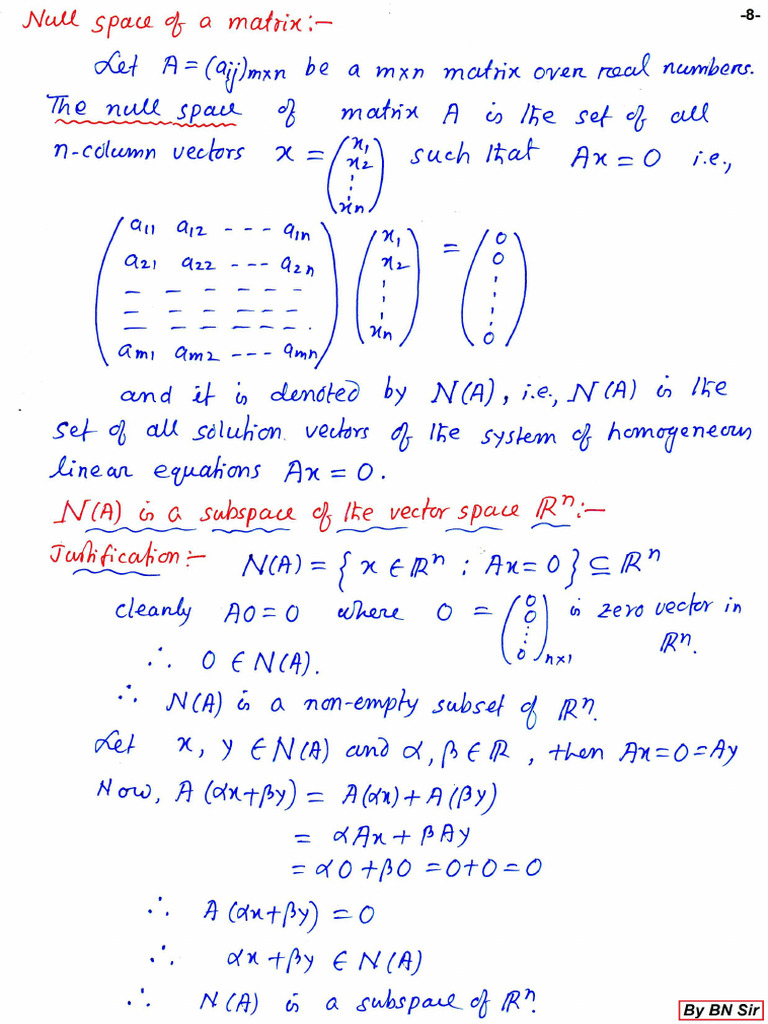 Null space of a matrix:-
-8-
Let A = (aij)m×n be a m×n matrix over real numbers.
The null space of matrix A is the set of all
n-column vectors x = (x1 x2 ⋮ xn) such that Ax = 0 i.e.,
(a11 a12 --- a1n) (x1) = (0)
(a21 a22 --- a2n) (x2) (0)
(– – – – – –) (⋮) (⋮)
(– – – – – –) (⋮) (⋮)
(– – – – – –.) (xn) (⋮)
(am1 am2 --- amn) (0)
and it is denoted by N(A), i.e., N(A) is the
set of all solution vectors of the system of homogeneous
linear equations Ax = 0.
N(A) is a subspace of the vector space ℝⁿ:-
Justification:- N(A) = { x ∈ ℝⁿ : Ax = 0 } ⊆ ℝⁿ
clearly A0 = 0 where 0 = (0 0 ⋮ 0)n×1 is zero vector in
ℝⁿ.
∴ 0 ∈ N(A).
∴ N(A) is a non-empty subset of ℝⁿ.
Let x, y ∈ N(A) and α, β ∈ ℝ, then Ax = 0 = Ay
Now, A(αx+βy) = A(αx) + A(βy)
= αAx + βAy
= α0 + β0 = 0+0 = 0
∴ A(αx+βy) = 0
∴ αx+βy ∈ N(A)
∴ N(A) is a subspace of ℝⁿ.
By BN Sir